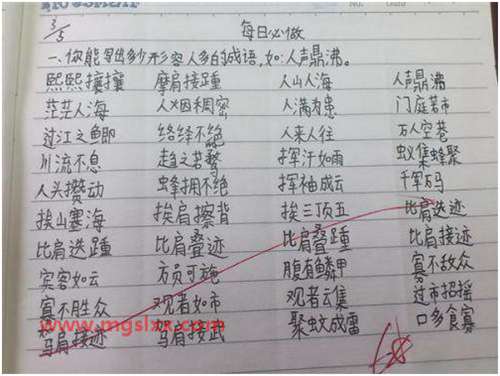 3/5
每日必做
一、你能写出多少形容人多的成语,如:人声鼎沸。
熙熙攘攘 摩肩接踵 人山人海 人声鼎沸
茫茫人海 人烟稠密 人满为患 门庭若市
过江之鲫 络绎不绝 人来人往 万人空巷
川流不息 趋之若鹜 挥汗如雨 蚁集蜂聚
人头攒动 蜂拥不绝 挥袖成云 千军万马
挨山塞海 挨肩擦背 挨三顶五 比肩迭迹
比肩迭踵 比肩叠迹 比肩叠踵 比肩接迹
宾客如云 方员可施 腹背鳞甲 寡不敌众
寡不胜众 观者如市 观者云集 过市招摇
肩接迹 肩接武 聚蚊成雷 口多食寡
www.mgslxx.com